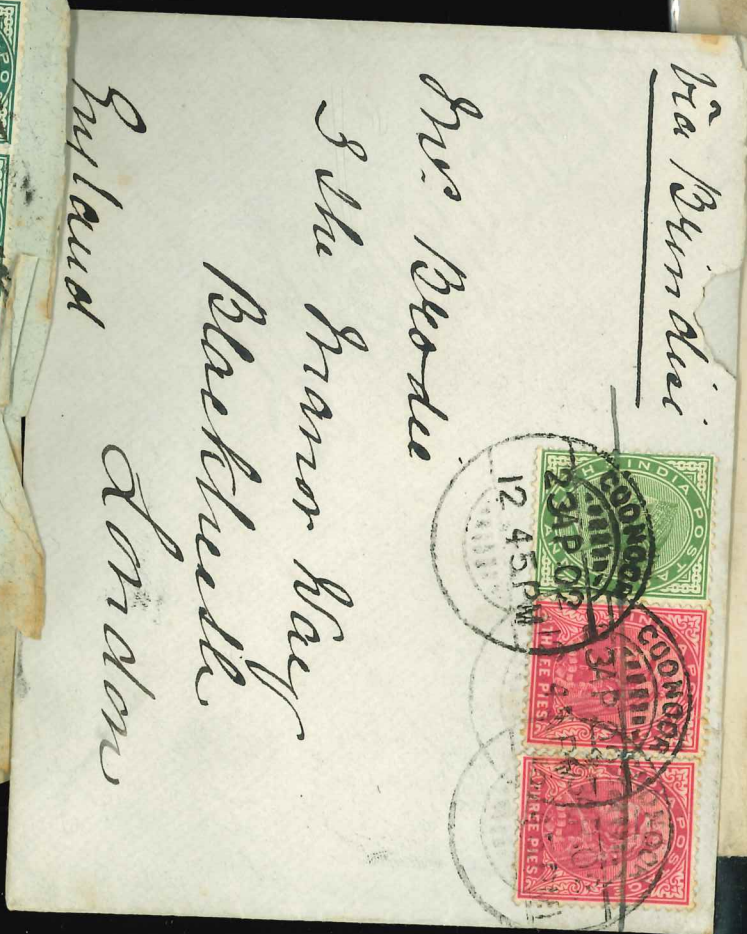 Via Brindisi
Mrs. Brodie
I The Manor Way
Blackheath
London
England
INDIA POSTA
COONOOR
23 AP. 02
12 45 PM
COONOOR
THREE PIES
THREE PIES